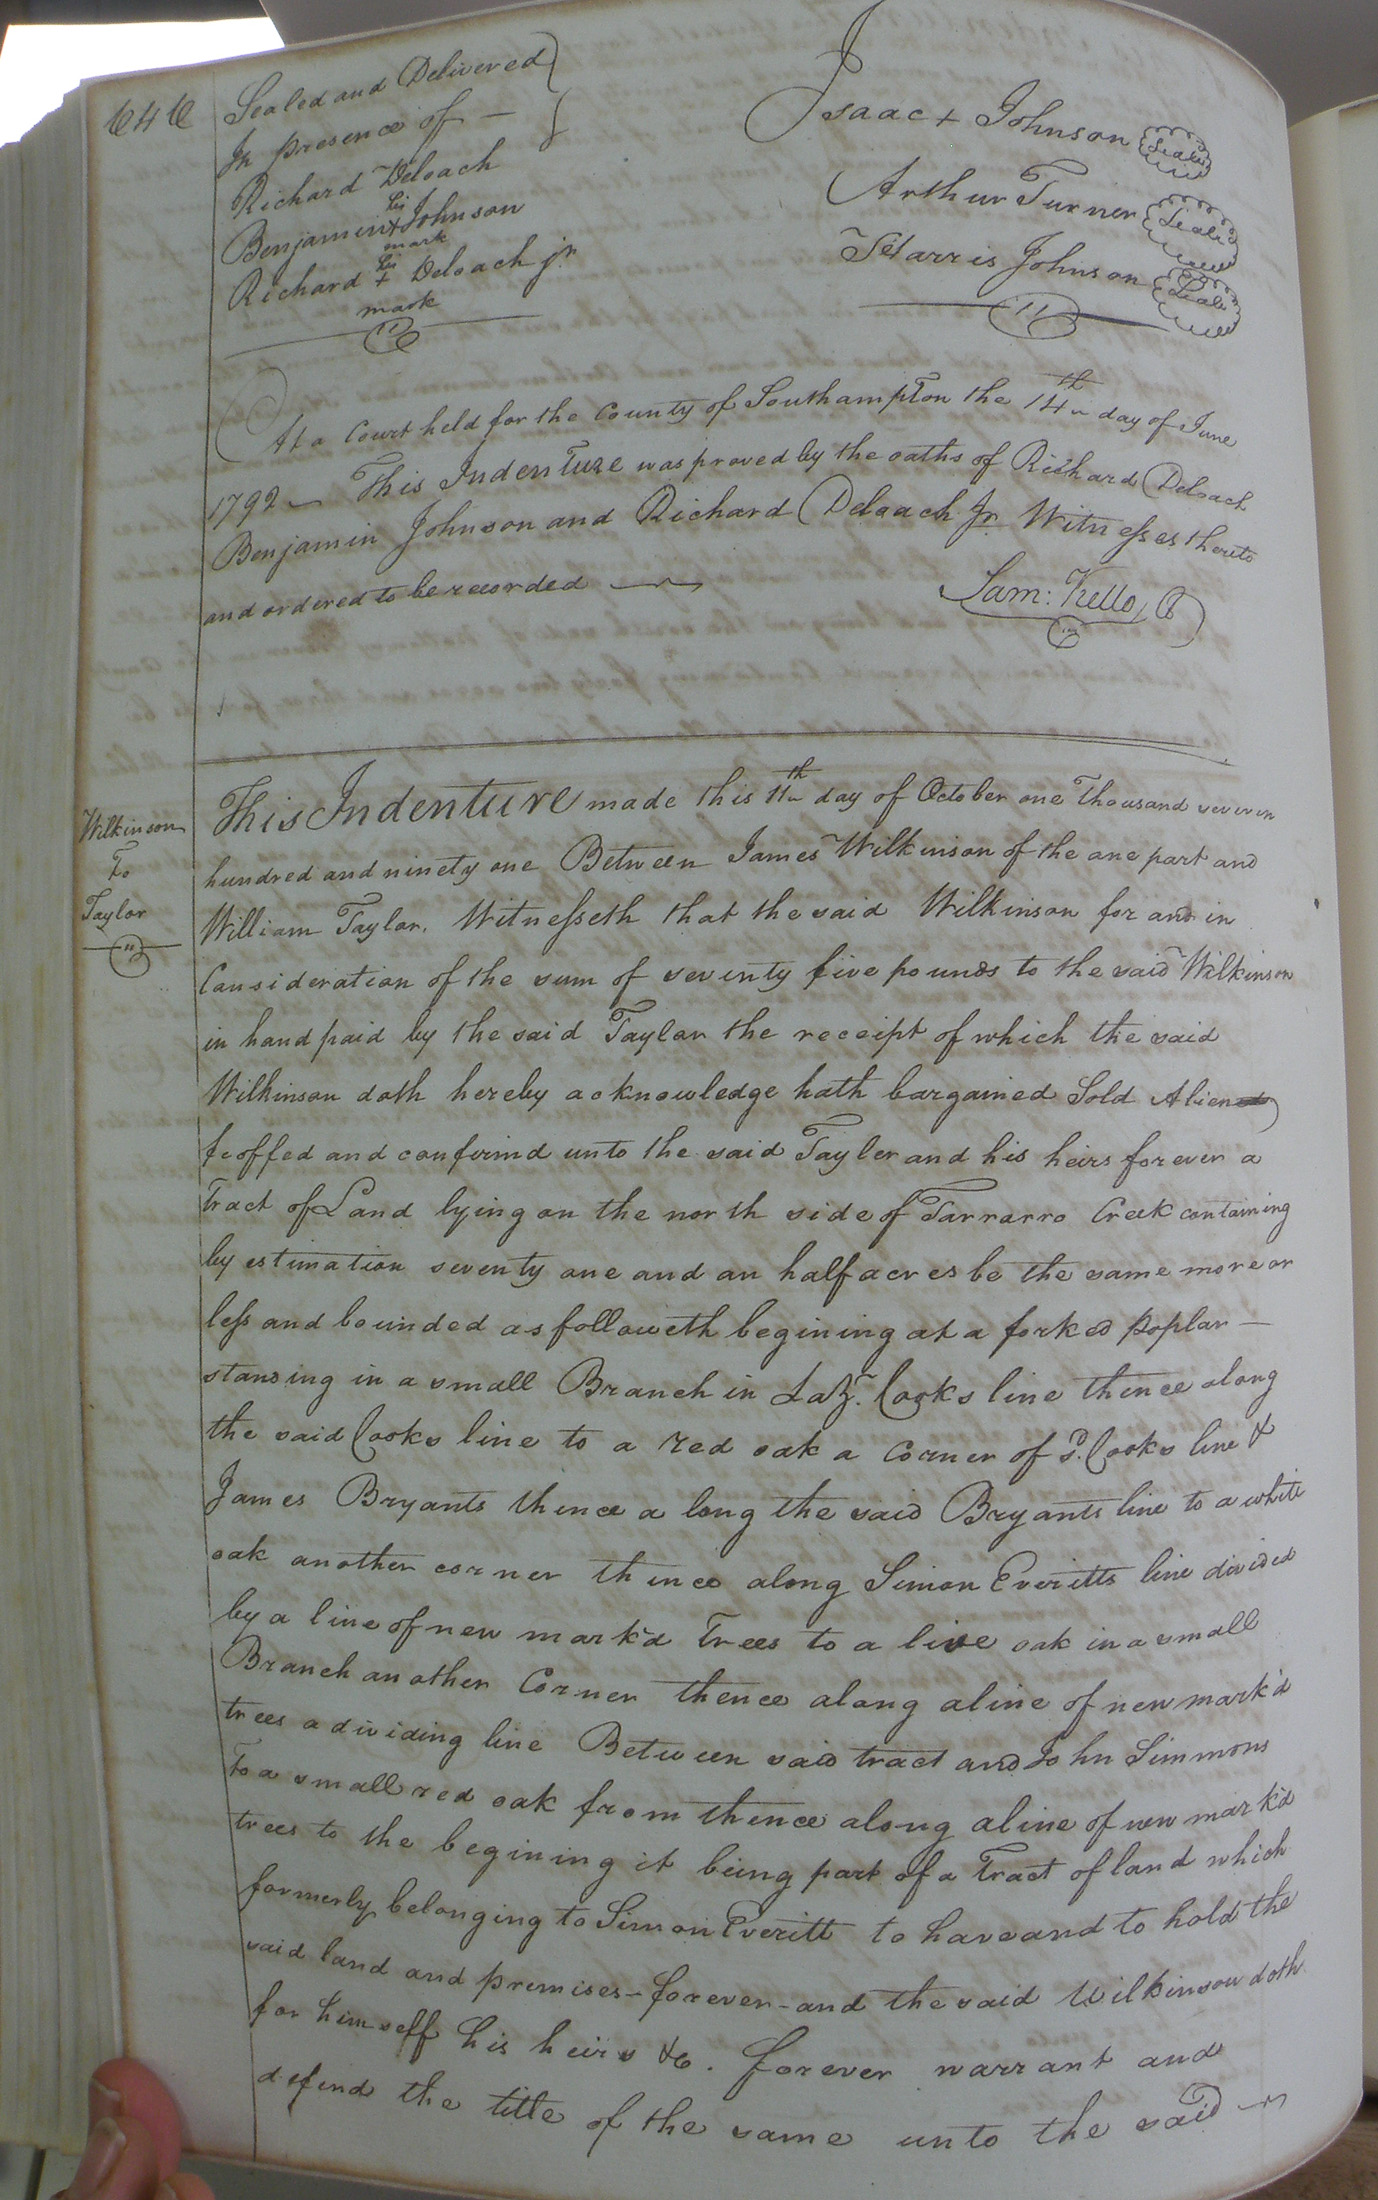 646
Sealed and Delivered
In presence of —
Richard Deloach
Benjamin his + mark Johnson
Richard his + mark Deloach jr
Isaac + Johnson Seal
Arthur Turner Seal
Harris Johnson Seal
At a Court held for the County of Southampton the 14th day of June
1792 — This Indenture was proved by the oaths of Richard Deloach
Benjamin Johnson and Richard Deloach Jr Witnesses thereto
and ordered to be recorded
Sam: Kello, C
Wilkinson
To
Taylor
This Indenture made this 11th day of October one Thousand seven
hundred and ninety one Between James Wilkinson of the one part and
William Taylor. Witnesseth that the said Wilkinson for and in
Consideration of the sum of seventy five pounds to the said Wilkinson
in hand paid by the said Taylor the receipt of which the said
Wilkinson doth hereby acknowledge hath bargained Sold Aliened
feoffed and confirmd unto the said Tayler and his heirs forever a
Tract of Land lying on the north side of Tarrarro Creek containing
by estimation seventy one and an half acres be the same more or
less and bounded as followeth begining at a forked poplar —
standing in a small Branch in Laz. Cooks line thence along
the said Cooks line to a red oak a corner of sd. Cooks line &
James Bryants thence a long the said Bryants line to a white
oak another corner thence along Simon Everitts line divided
by a line of new mark'd Trees to a live oak in a small
Branch another Corner thence along a line of new mark'd
trees a dividing line Between said tract and John Simmons
To a small red oak from thence along a line of new mark'd
trees to the begining it being part of a Tract of land which
formerly belonging to Simon Everitt to have and to hold the
said land and premises - forever - and the said Wilkinson doth
for himself his heirs &c. forever warrant and
defend the title of the same unto the said